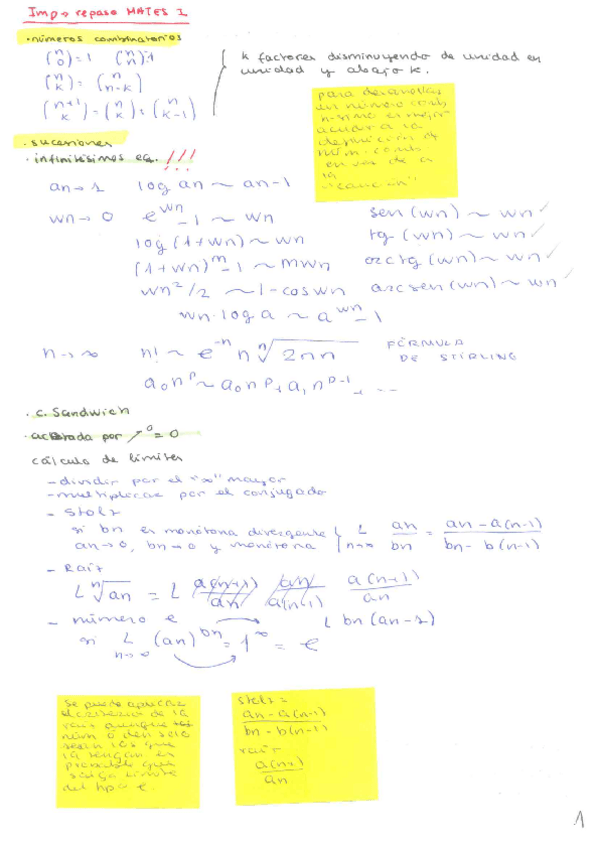 Imp → repaso MATES 1
· números combinatorios
(n 0) = 1 (n n) = 1
(n k) = (n n-k)
(n+1 k) - (n k) = (n k-1)
k factores disminuyendo de unidad en
unidad y abajo k.
para desarrollar
un número comb.
n-simo es mejor
acudir a la
definición de
núm. comb.
en vez de a
la
"canción"
· sucesiones
· infinitésimos eq. !!!
an → 1 log an ~ an-1
wn → 0 e^wn - 1 ~ wn sen(wn) ~ wn ✓
log (1+wn) ~ wn tg (wn) ~ wn ✓
(1+wn)^m - 1 ~ mwn arctg (wn) ~ wn ✓
wn²/2 ~ 1-cos wn arcsen (wn) ~ wn ✓
wn·log a ~ a^wn - 1
n → ∞ n! ~ e^-n n^n √2πn FÓRMULA
DE STIRLING
a₀n^p ~ a₀n^p + a₁n^p-1 + ...
· c. Sandwich
· acotada por → 0 = 0
cálculo de límites
- dividir por el "∞" mayor
- multiplicar por el conjugado
- Stolz
si bn es monótona divergente
an → 0, bn → 0 y monótona
L n→∞ an/bn = an - a(n-1) / bn - b(n-1)
- Raíz
L ⁿ√an = L a(n+1)/an an/a(n-1) a(n+1)/an
- número e
si L n→∞ (an)^bn = 1^∞ = e^L bn(an-1)
Se puede aplicar
el criterio de la
raíz aunque
núm o den solo
sean los que
la tengan es
probable que
salga límite
del tipo e.
stolz =
an - a(n-1)
bn - b(n-1)
raíz
a(n+1)
an
1